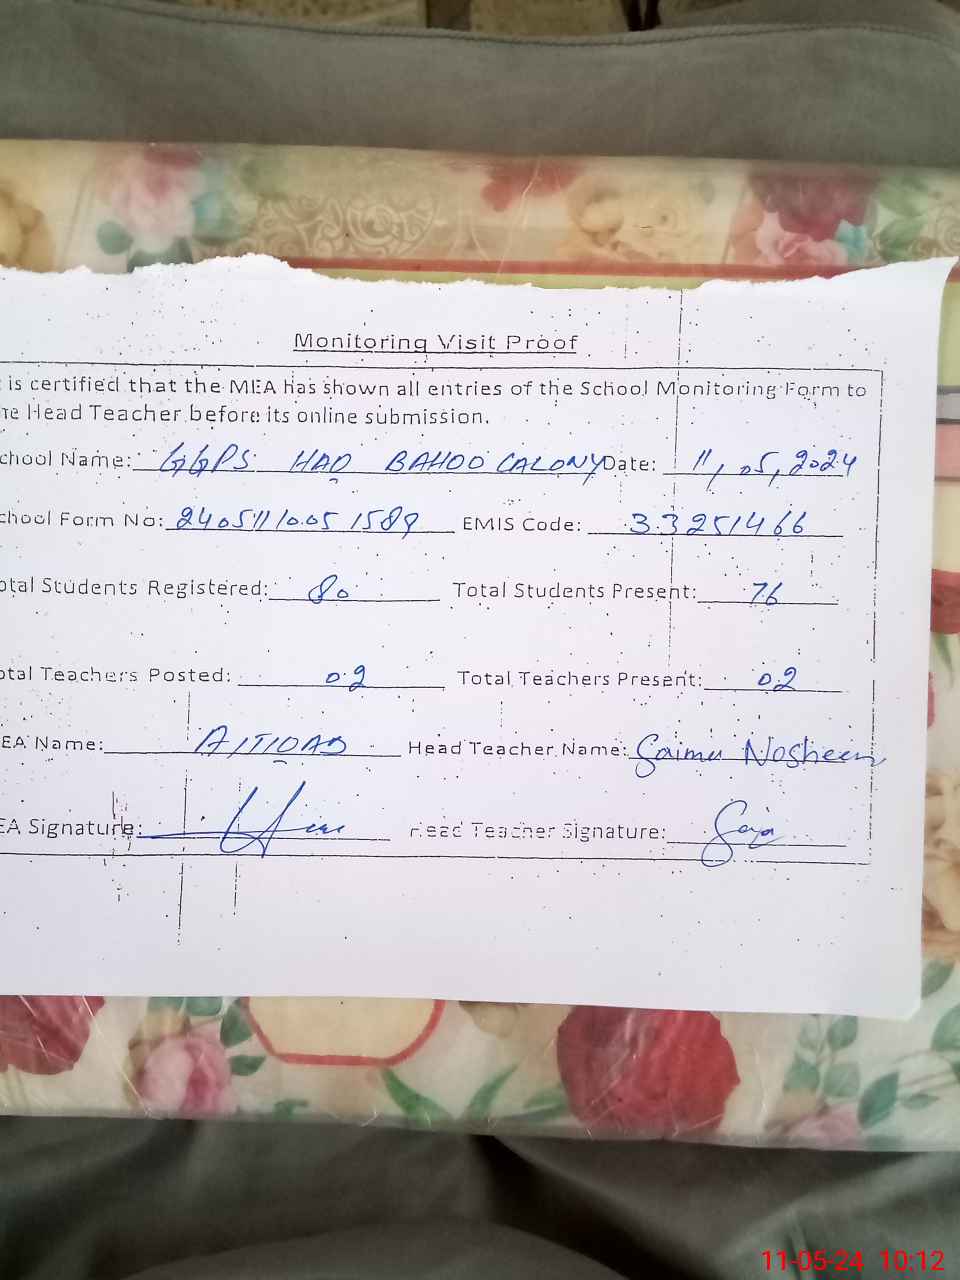 Monitoring Visit Proof
is certified that the MEA has shown all entries of the School Monitoring Form to
he Head Teacher before its online submission.
chool Name: GGPS HAQ BAHOO CALONY Date: 11, 05, 2024
chool Form No: 240511100515 89 EMIS Code: 33251466
otal Students Registered: 80 Total Students Present: 76
otal Teachers Posted: 02 Total Teachers Present: 02
EA Name: Head Teacher Name: Saima Nosheen
EA Signature: Head Teacher Signature:
11-05-24 10:12